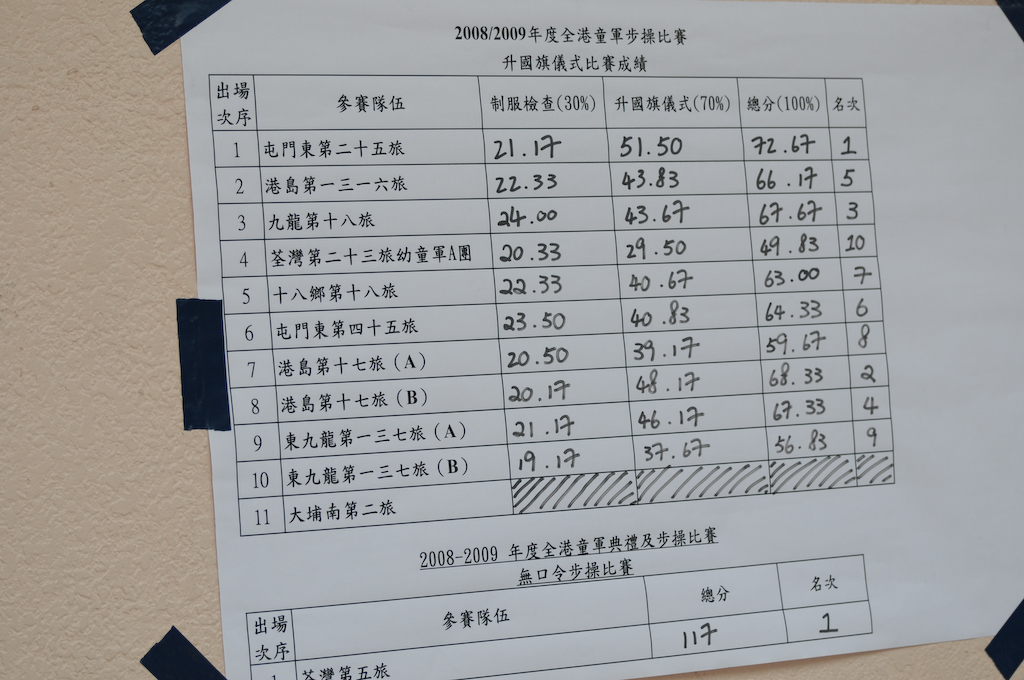 2008/2009年度全港童軍步操比賽
升國旗儀式比賽成績
出場次序 參賽隊伍 制服檢查(30%) 升國旗儀式(70%) 總分(100%) 名次
1 屯門東第二十五旅 21.17 51.50 72.67 1
2 港島第一三一六旅 22.33 43.83 66.17 5
3 九龍第十八旅 24.00 43.67 67.67 3
4 荃灣第二十三旅幼童軍A團 20.33 29.50 49.83 10
5 十八鄉第十八旅 22.33 40.67 63.00 7
6 屯門東第四十五旅 23.50 40.83 64.33 6
7 港島第十七旅(A) 20.50 39.17 59.67 8
8 港島第十七旅(B) 20.17 48.17 68.33 2
9 東九龍第一三七旅(A) 21.17 46.17 67.33 4
10 東九龍第一三七旅(B) 19.17 37.67 56.83 9
11 大埔南第二旅
2008-2009 年度全港童軍典禮及步操比賽
無口令步操比賽
出場次序 參賽隊伍 總分 名次
1 荃灣第五旅 117 1